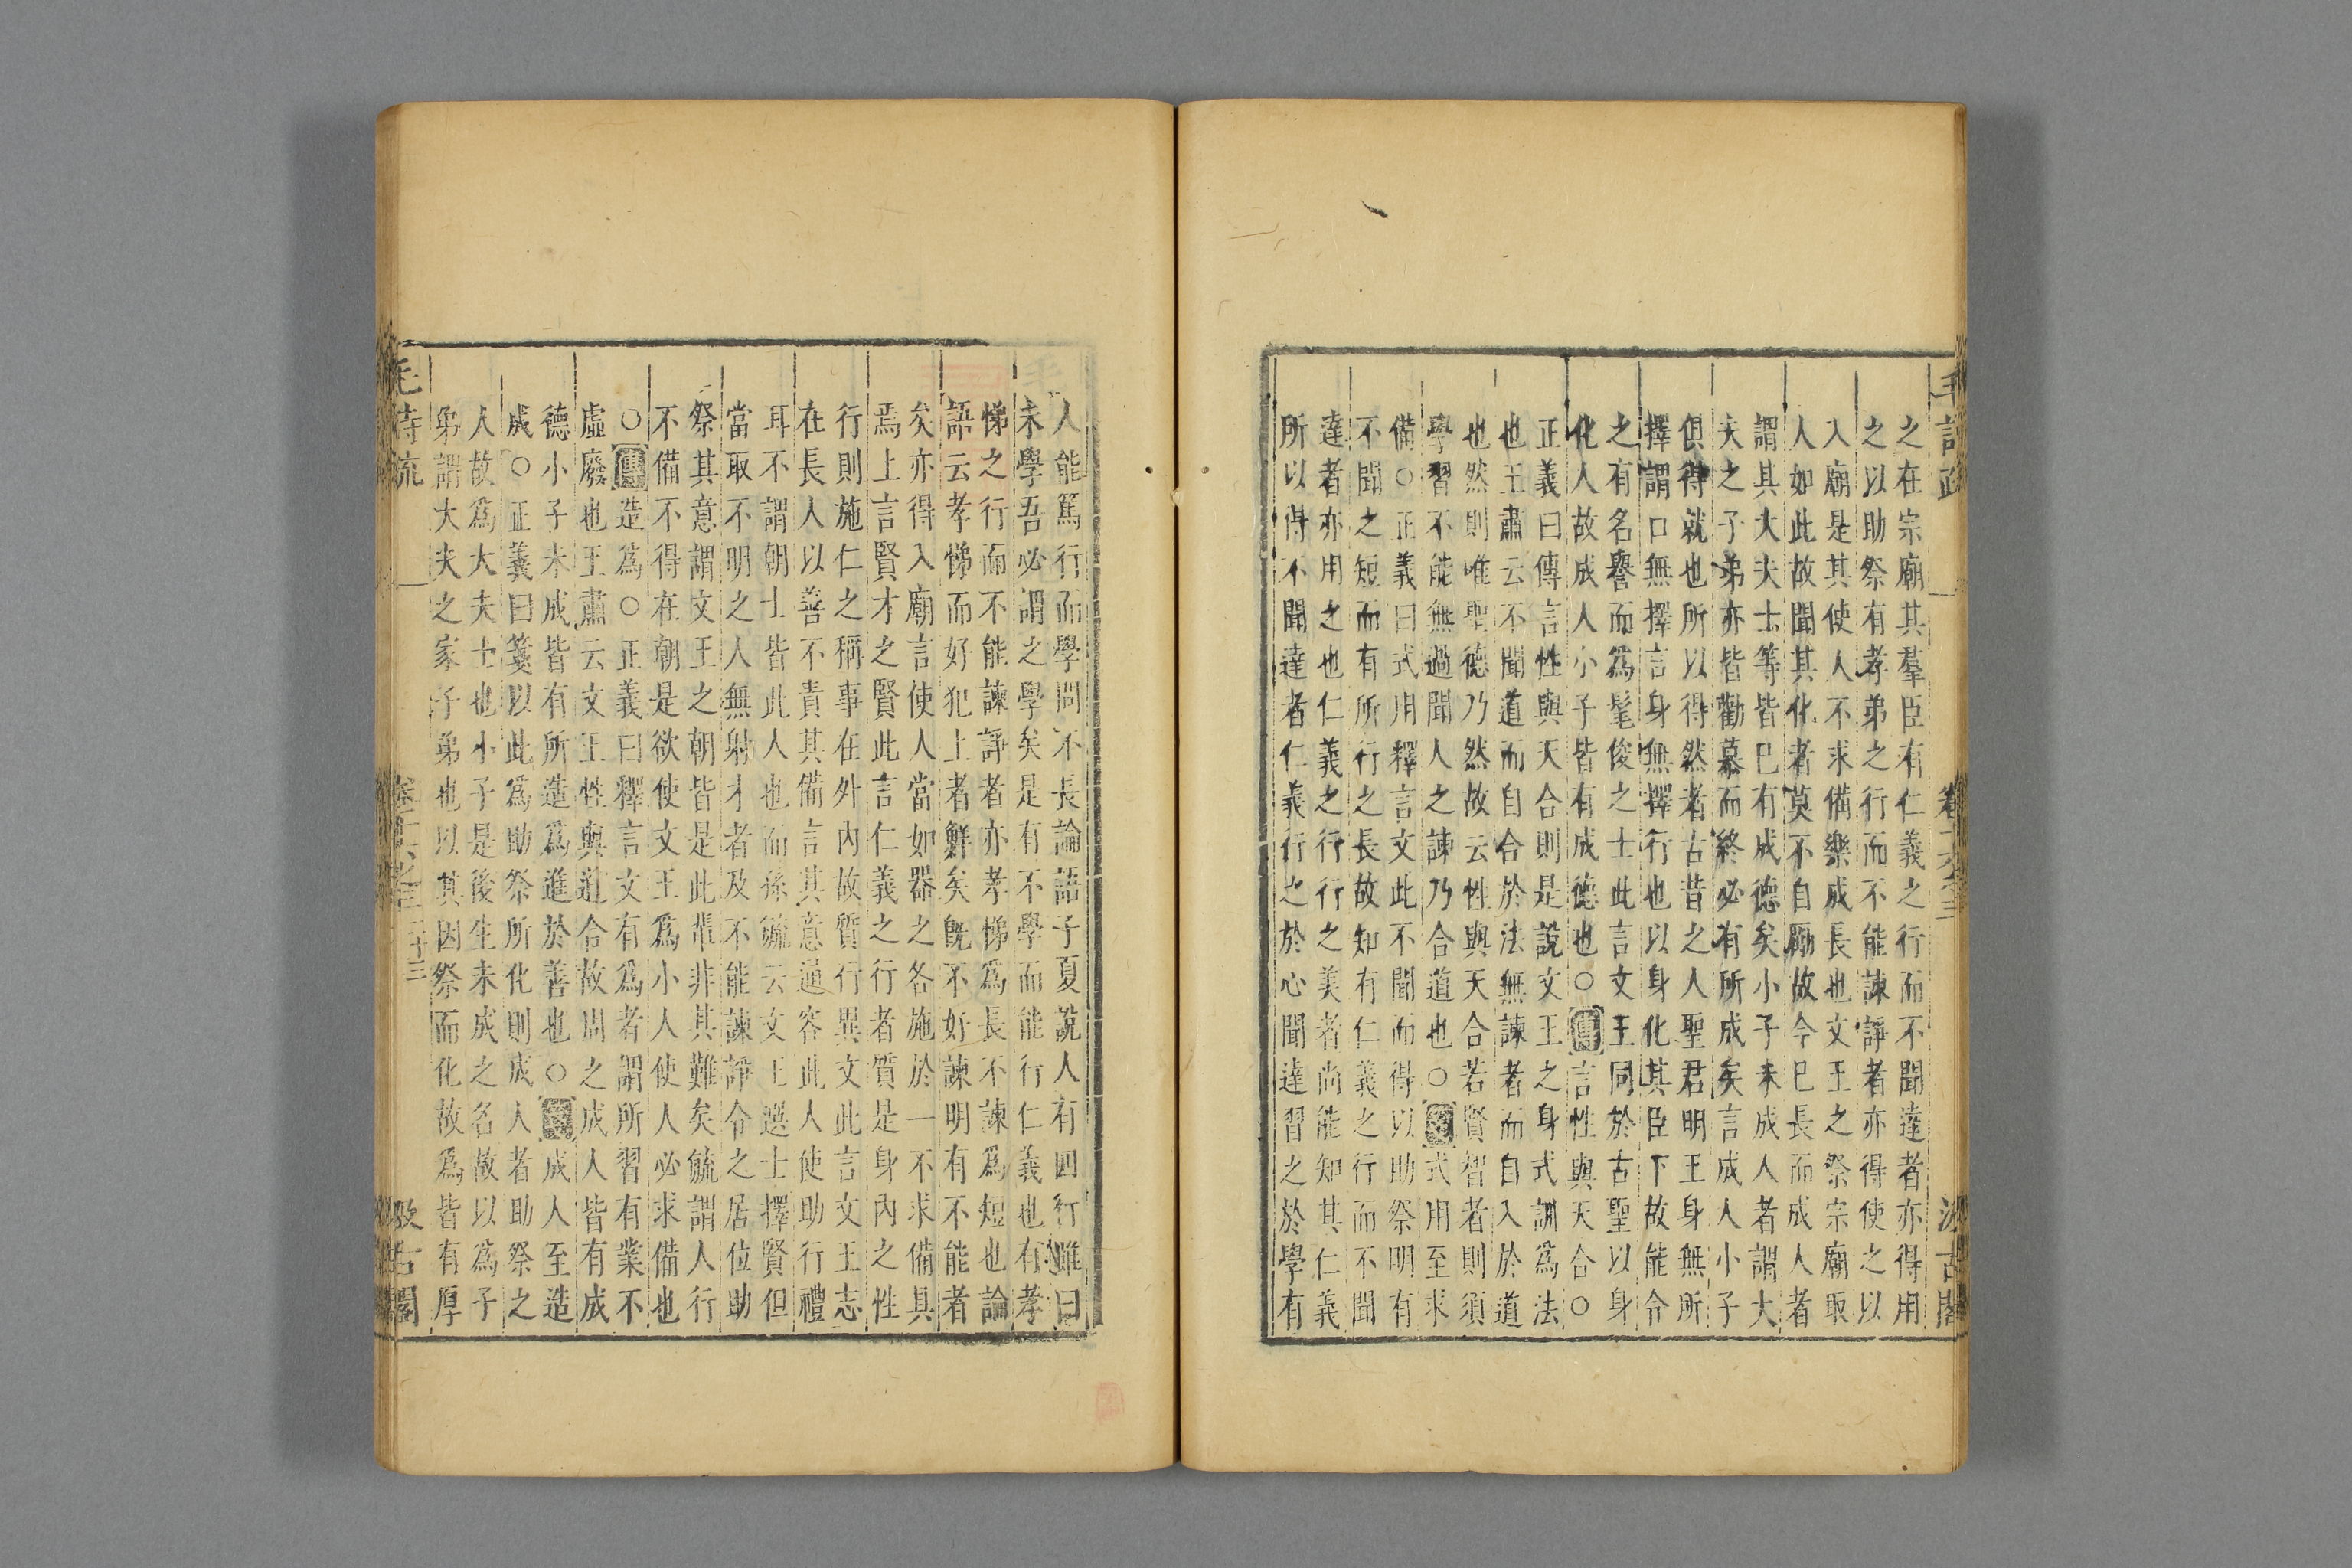 毛詩疏 卷十六之三 汲古閣
之在宗廟其羣臣有仁義之行而不聞達者亦得用
之以助祭有孝弟之行而不能諫諍者亦得使之以
入廟是其使人不求備樂成長也文王之祭宗廟取
人如此故聞其化者莫不自勵故今已長而成人者
謂其大夫士等皆已有成德矣小子未成人者謂大
夫之子弟亦皆勸慕而終必有所成矣言成人小子
俱得就也所以得然者古昔之人聖君明王身無所
擇謂口無擇言身無擇行也以身化其臣下故能令
之有名譽而爲髦俊之士此言文王同於古聖以身
化人故成人小子皆有成德也○傳言性與天合○
正義曰傳言性與天合則是說文王之身式訓爲法
也王肅云不聞道而自合於法無諫者而自入於道
也然則唯聖德乃然故云性與天合若賢智者則須
學習不能無過聞人之諫乃合道也○箋式用至求
備○正義曰式用釋言文此不聞而得以助祭明有
不聞之短而有所行之長故知有仁義之行而不聞
達者亦用之也仁義之行行之美者尚能知其仁義
所以得不聞達者仁義行之於心聞達習之於學有
人能篤行而學問不長論語子夏說人有四行雖曰
未學吾必謂之學矣是有不學而能行仁義也有孝
悌之行而不能諫諍者亦孝悌爲長不諫爲短也論
語云孝悌而好犯上者鮮矣旣不好諫明有不能者
矣亦得入廟言使人當如器之各施於一不求備具
焉上言賢才之賢此言仁義之行者質是身內之性
行則施仁之稱事在外內故質行異文此言文王志
在長人以善不責其備言其意通容此人使助行禮
耳不謂朝士皆此人也而孫毓云文王選士擇賢但
當取不明之人無射才者及不能諫諍令之居位助
祭其意謂文王之朝皆是此輩非其難矣毓謂人行
不備不得在朝是欲使文王爲小人使人必求備也
○傳造爲○正義曰釋言文有爲者謂所習有業不
虛廢也王肅云文王性與道合故周之成人皆有成
德小子未成皆有所造爲進於善也○箋成人至造
成○正義曰箋以此爲助祭所化則成人者助祭之
人故爲大夫士也小子是後生未成之名故以爲子
弟謂大夫之家子弟也以其因祭而化故爲皆有厚
毛詩疏 卷十六之三 二十三 汲古閣